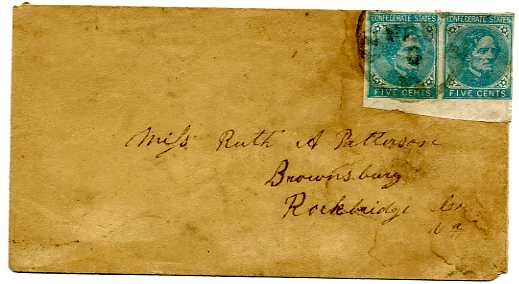 CONFEDERATE STATES CONFEDERATE STATES
FIVE CENTS FIVE CENTS
Miss Ruth A Patterson
Brownsburg
Rockbridge Co
Va